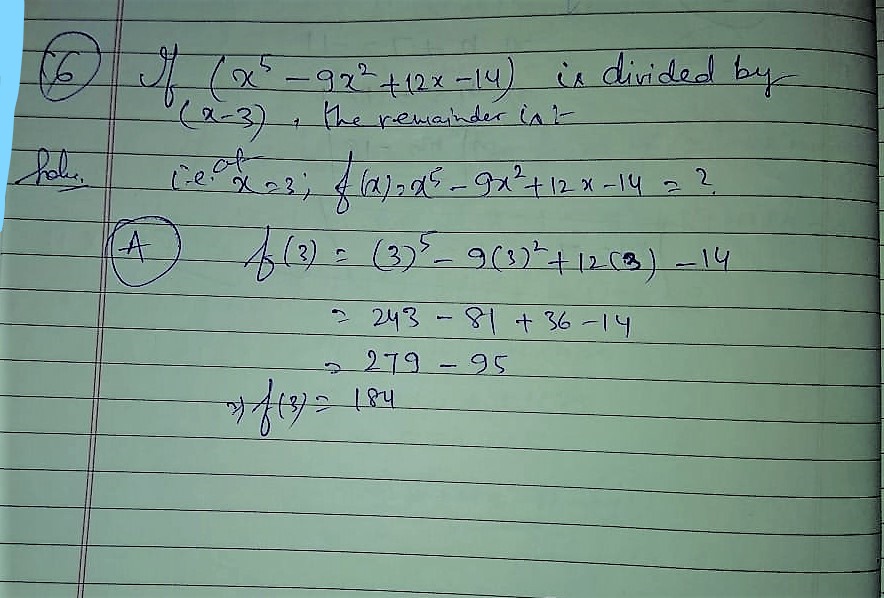 6 If (x⁵ - 9x² + 12x - 14) is divided by
(x-3), the remainder is :-
Soln. i.e. at x = 3; f(x) = x⁵ - 9x² + 12x - 14 = ?
A f(3) = (3)⁵ - 9(3)² + 12(3) - 14
= 243 - 81 + 36 - 14
= 279 - 95
⇒ f(3) = 184